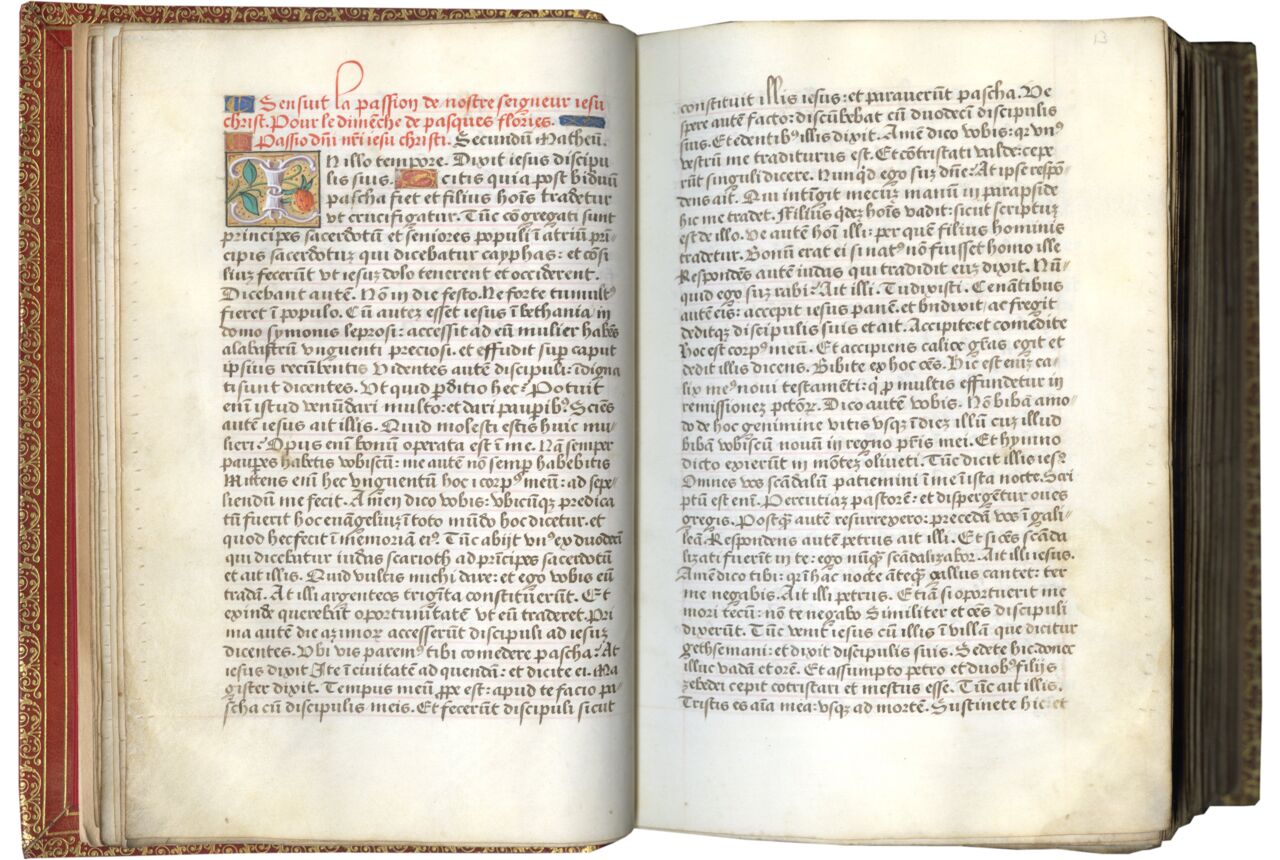 Sensuit la passion de nostre seigneur iesu
christ. Pour le dimēche de pasques flories.
Passio dnī nrī iesu christi. Secundū Matheū.
In illo tempore. Dixit iesus discipu
lis suis. Scitis quia post biduū
pascha fiet et filius hoīs tradetur
vt crucifigatur. Tūc cōgregati sunt
principes sacerdotū et seniores populi ī atriū prī-
cipis sacerdotuȝ qui dicebatur cayphas: et cōsi
liuȝ fecerūt vt iesuȝ dolo tenerent et occiderent.
Dicebant autē. Nō in die festo. Ne forte tumultꝰ
fieret ī populo. Cū auteȝ esset iesus ī bethania in
domo symonis leprosi: accessit ad eū mulier habēs
alabastrū vnguenti preciosi. et effudit suꝑ caput
ipsius recūbentis Videntes autē discipuli: īdigna
ti sunt dicentes. Vt quid ꝑditio hec? Potuit
enī istud venūdari multo: et dari paupibꝰ. Sciēs
autē iesus ait illis. Quid molesti estis huic mu-
lieri? Opus enī bonū operata est ī me. Nā semper
paupes habetis vobiscū: me autē nō semꝑ habebitis
Mittens enī hec vnguentū hoc ī corpꝰ meū: ad sepe-
liendū me fecit. Amen dico vobis: vbicūqꝫ predica
tū fuerit hoc euāgeliuȝ ī toto mūdo hoc dicetur. et
quod hec fecit ī memoriā eiꝰ. Tūc abijt vnꝰ ex duodeci
qui dicebatur iudas scarioth ad prīcipes sacerdotū
et ait illis. Quid vultis michi dare: et ego vobis eū
tradā. At illi argenteos trigīta constituerūt. Et
exinde querebāt oportunitatē vt eū traderet. Pri
ma autē die aȝimoꝝ accesserūt discipuli ad iesuȝ
dicentes. Vbi vis paremꝰ tibi comedere pascha? At
iesus dixit Ite ī ciuitatē ad quendā: et dicite ei. Ma
gister dixit. Tempus meū ꝓpe est: apud te facio pa-
scha cū discipulis meis. Et fecerūt discipuli sicut
13
constituit illis iesus: et parauerūt pascha. Ve
spere autē facto: discūbebat cū duodeci discipulis
suis. Et edentibꝰ illis dixit. Amē dico vobis: qꝛ vnꝰ
vestrū me traditurus est. Et cōtristati valde: cepe
rūt singuli dicere. Nunqd ego suȝ dn̄e? At ipse respō-
dens ait. Qui intīgit mecuȝ manū in parapside
hic me tradet. Filius qdeȝ hoīs vadit: sicut scriptuȝ
est de illo. Ve autē hoī illi: per quē filius hominis
tradetur. Bonū erat ei si natꝰ nō fuisset homo ille
Respondēs autē iudas qui tradidit euȝ dixit. Nū-
quid ego suȝ rabi? Ait illi. Tu dixisti. Cenātibus
autē eis: accepit iesus panē. et bn̄dixit: ac fregit
deditqꝫ discipulis suis et ait. Accipite: et comedite
hoc est corpꝰ meū. Et accipiens calicē gr̄as egit et
dedit illis dicens. Bibite ex hoc oēs. Hic est eniȝ ca-
lix meꝰ noui testamēti: q̇ ꝓ multis effundetur in
remissioneȝ pctōꝝ. Dico autē vobis. Nō bibā amo-
do de hoc genimine vitis vsqꝫ ī dieȝ illū cuȝ illud
bibā vobiscū nouū in regno pr̄is mei. Et hymno
dicto exierūt in mōteȝ oliueti. Tūc dicit illis iesꝰ
Omnes vos scādalū patiemini ī me ī ista nocte. Scri
ptū est enī. Percutiaȝ pastorē: et dispergētur oues
gregis. Postqꝫ autē resurrexero: precedā vos ī gali-
leā. Respondens autē petrus ait illi. Et si oēs scāda
lizati fuerīt in te: ego nūqꝫ scādalizabor. Ait illi iesus.
Amē dico tibi: qꝛ ī hac nocte āteqꝫ gallus cantet: ter
me negabis. Ait illi petrus. Etiā si oportuerit me
mori tecū: nō te negabo Similiter et oēs discipuli
dixerūt. Tūc venit iesus cū illis ī villā que dicitur
gethsemani: et dixit discipulis suis. Sedete hic. donec
illuc vadā et orē. Et assumpto petro et duobꝰ filijs
ȝebedei cepit cōtristari et mestus esse. Tūc ait illis.
Tristis es aīa mea: vsqꝫ ad mortē. Sustinete hic. et